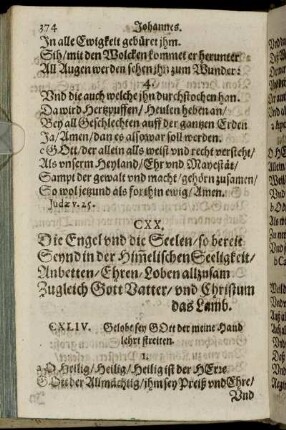 374 Johannes.
In alle Ewigkeit gebüret ihm.
Sih/ mit den Wolcken kommet er herunter
All Augen werden sehen ihn zum Wunder:
4.
Vnd die auch welche ihn durchstochen han.
Da wird Hertzpuffen/ Heulen heben an/
Bey all Geschlechten auff der gantzen Erden
Ja/ Amen/ dan es also war soll werden.
c GOtt/ der allein alls weist vnd recht versteht/
Als vnserm Heyland/ Ehr vnd Mayestät/
Sampt der gewalt vnd macht/ gehörn zusamen/
So wol jetzund als forthin ewig/ Amen.
Judæ v. 25.
CXX.
Die Engel vnd die Seelen/ so bereit
Seynd in der Himelischen Seeligkeit/
Anbetten/ Ehren/ Loben allzusam
Zugleich Gott Vatter/ vnd Christum
das Lamb.
CXLIV. Gelobt sey GOtt der meine Hand
lehrt streiten.
1.
a O Heilig/ Heilig/ Heilig ist der HErre
GOtt der Allmächtig/ ihm sey Preiß vnd Ehre/
Vnd